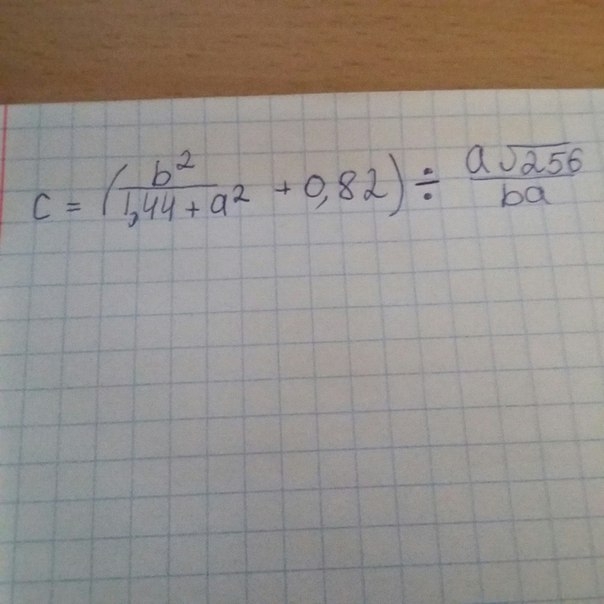 c = (b²/(1,44 + a²) + 0,82) ÷ (a√256)/(ba)